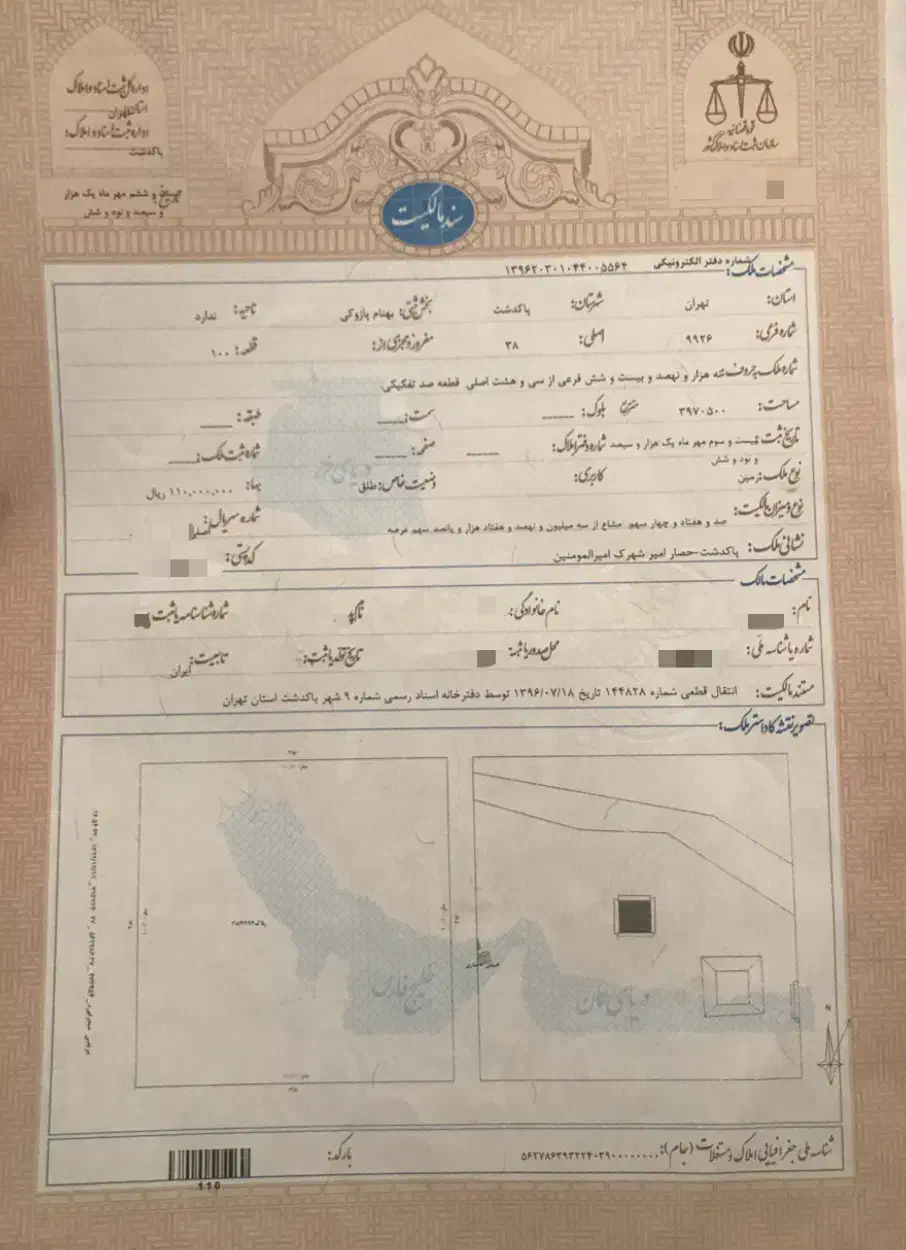 قوه قضائیه
سازمان ثبت اسناد و املاک کشور
اداره کل ثبت اسناد و املاک
استان تهران
اداره ثبت اسناد و املاک:
پاکدشت
و ششم مهر ماه یک هزار
و سیصد و نود و شش
سند مالکیت
مشخصات ملک: شماره دفتر الکترونیکی ۱۳۹۶۲۰۳۰۱۰۴۴۰۰۵۵۶۴
استان: تهران شهرستان: پاکدشت بخش ثبتی: بهنام پازوکی ناحیه: ندارد
شماره فرعی: ۹۹۲۶ اصلی: ۳۸ مفروز و مجزی از: قطعه: ۱۰۰
شماره ملک بحروف: نه هزار و نهصد و بیست و شش فرعی از سی و هشت اصلی قطعه صد تفکیکی
مساحت: ۳۹۷۰۵۰۰ بلوک: سمت: طبقه:
تاریخ ثبت: بیست و سوم مهر ماه یک هزار و سیصد و نود و شش شماره دفتر املاک: صفحه: شماره ثبت ملک:
نوع ملک: زمین کاربری: وضعیت خاص: طلق بهاء: ۱۱۰,۰۰۰,۰۰۰ ریال
نوع و میزان مالکیت: صد و هفتاد و چهار سهم مشاع از سه میلیون و نهصد و هفتاد هزار و پانصد سهم عرصه شماره سریال:
نشانی ملک: پاکدشت-حصار امیر شهرک امیرالمومنین کد پستی:
مشخصات مالک
نام: نام خانوادگی: نام پدر: شماره شناسنامه یا ثبت:
شماره یا شناسه ملی: محل صدور یا ثبت: تاریخ تولد یا ثبت: تابعیت: ایران
مستند مالکیت: انتقال قطعی شماره ۱۴۴۸۲۸ تاریخ ۱۳۹۶/۰۷/۱۸ توسط دفترخانه اسناد رسمی شماره ۹ شهر پاکدشت استان تهران
تصویر نقشه کاداستر ملک:
دریای خزر
خلیج فارس
دریای عمان
N
شناسه ملی جغرافیایی املاک و مستغلات (جام): ۵۶۲۷۸۶۳۹۳۲۲۴۰۳۹۰۰۰۰۰۰۰۰ بارکد:
110